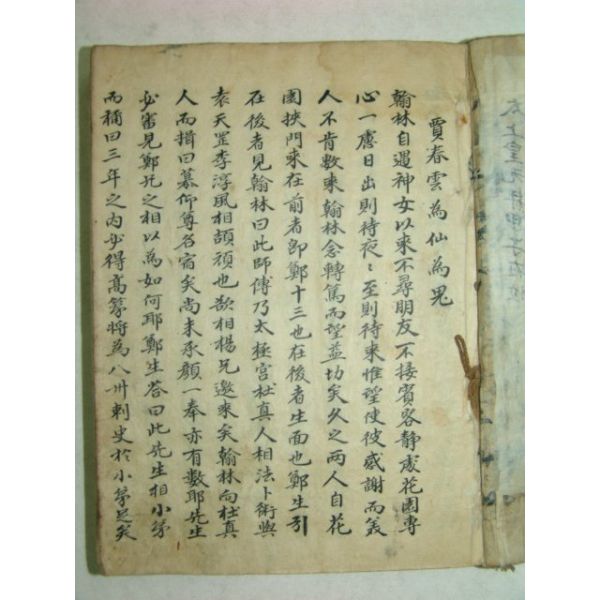 賈春雲為仙為鬼
翰林自遇神女以來不尋朋友不接賓客靜處花園專
心一慮日出則待夜〻至則待來惟望使彼感謝而美
人不肯數來翰林念轉篤而望益切矣久之兩人自花
園挾門來在前者即鄭十三也在後者生面也鄭生引
在後者見翰林曰此師傅乃太極宮杜真人相法卜術與
袁天罡李淳風相頡頏也欲相楊兄邀來矣翰林向杜真
人而揖曰慕仰尊名宿矣尚未承顔一奉亦有數耶先生
必審見鄭兄之相以為如何耶鄭生答曰此先生相小弟
而稱曰三年之內必得高第將為八州刺史於小弟足矣